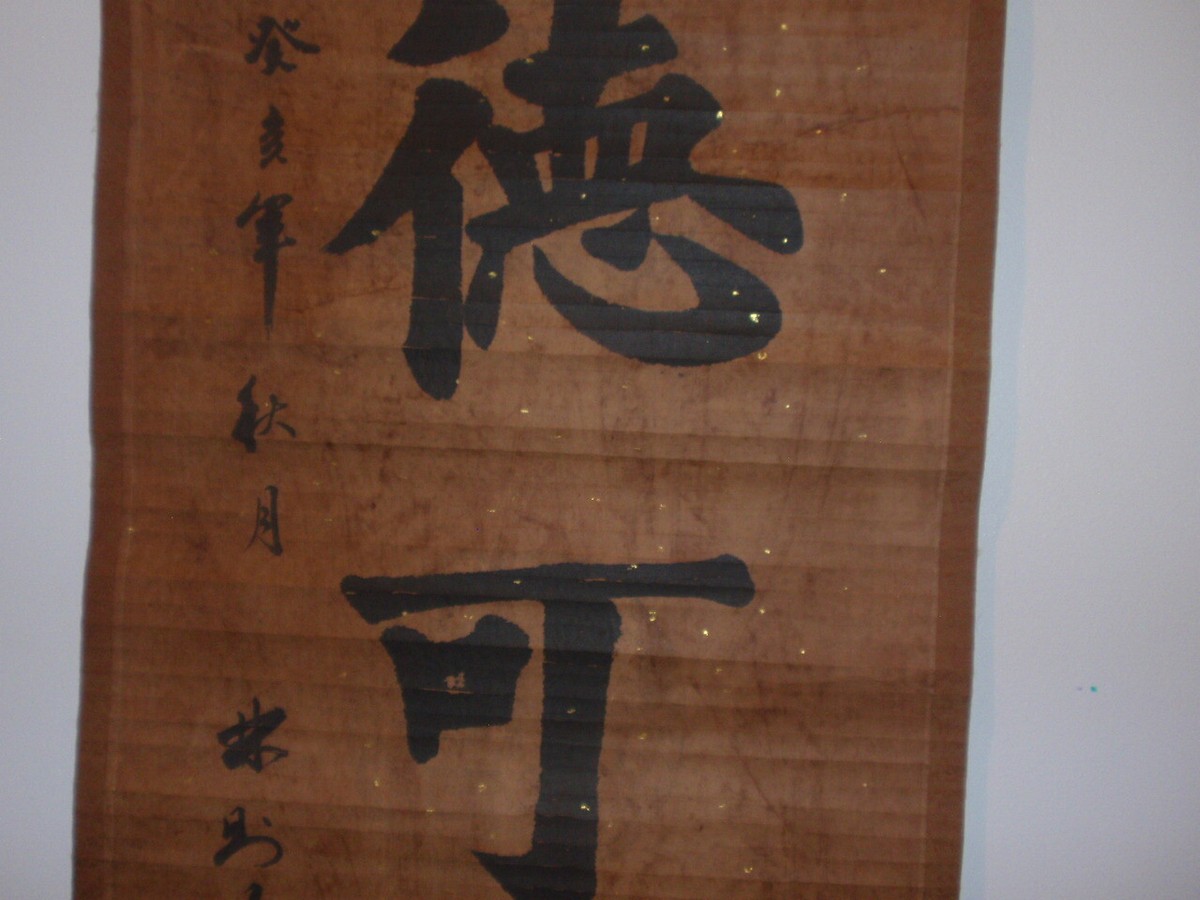 德可
癸亥年秋月 林則